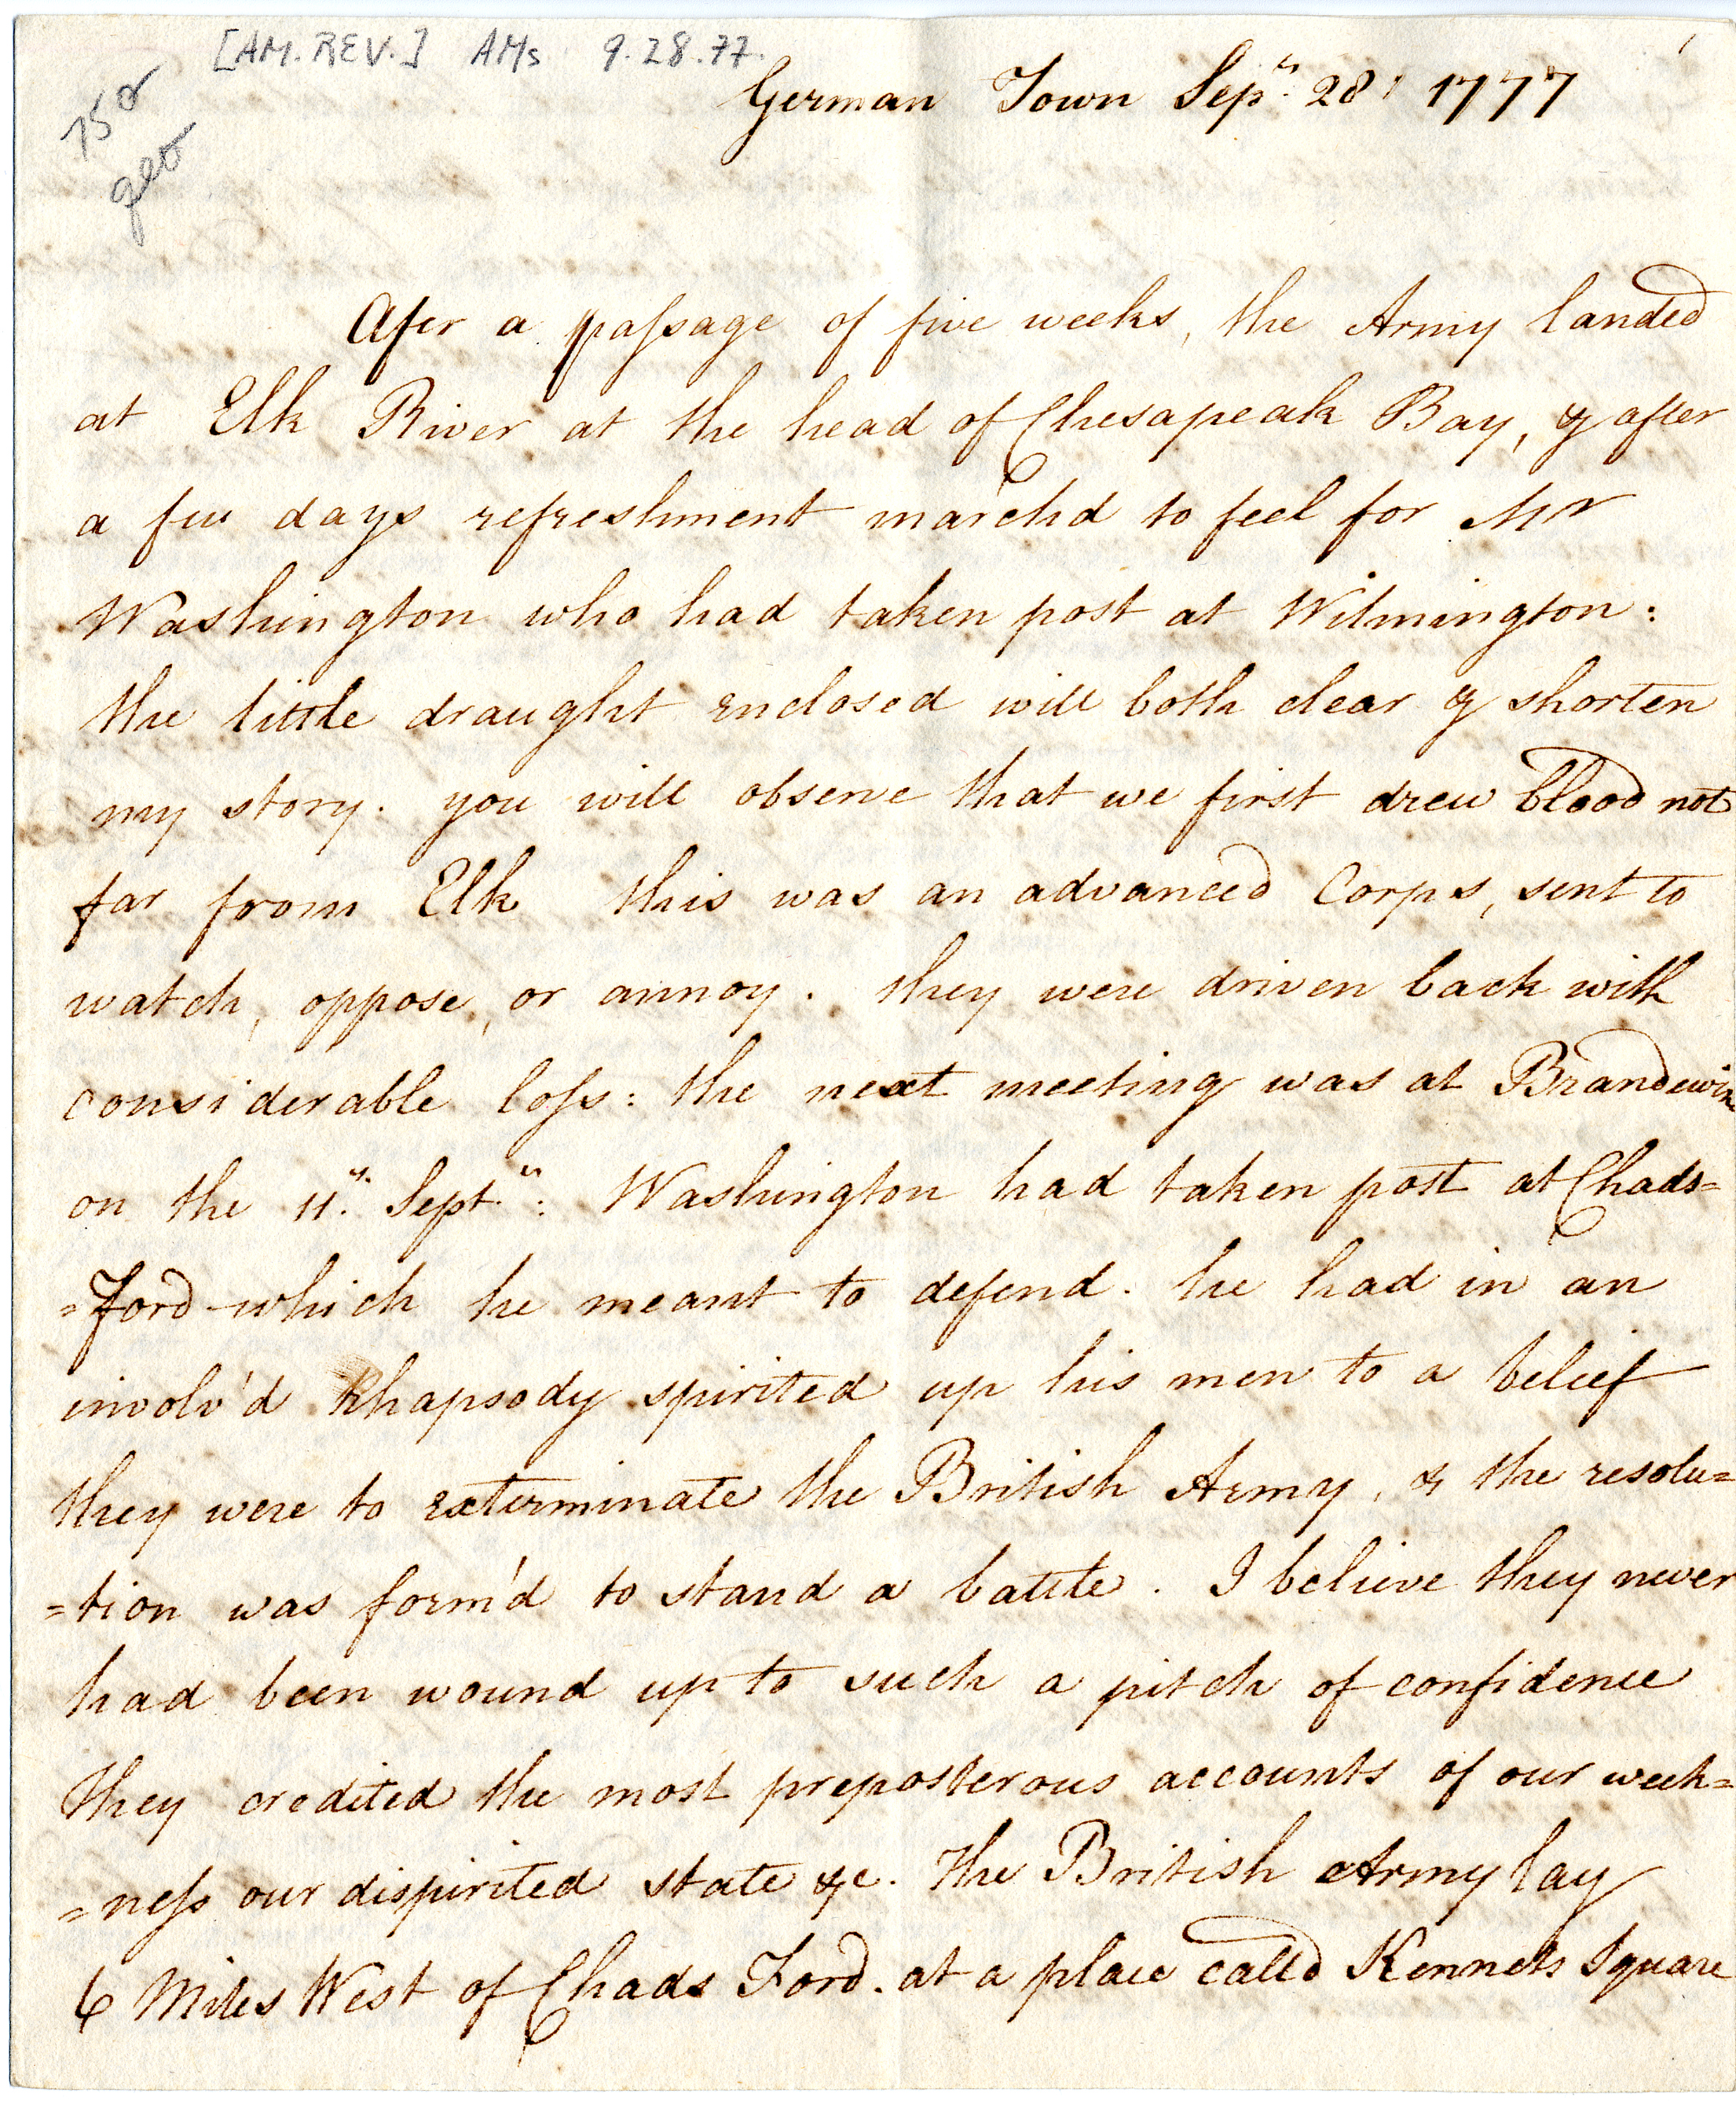 [AM. REV.] AMs 9.28.77.
German Town Sepr. 28, 1777
Afer a passage of five weeks, the Army landed
at Elk River at the head of Chesapeak Bay, & after
a few days refreshment march'd to feel for Mr
Washington who had taken post at Wilmington:
the little draught enclosed will both clear & shorten
my story. you will observe that we first drew blood not
far from Elk this was an advanced Corps, sent to
watch, oppose, or annoy. they were driven back with
considerable loss: the next meeting was at Brandewin
on the 11th. Septr: Washington had taken post at Chads=
=Ford which he meant to defend. he had in an
involv'd Rhapsody spirited up his men to a belief
they were to exterminate the British Army, & the resolu=
=tion was form'd to stand a battle. I believe they never
had been wound up to such a pitch of confidence
they credited the most preposterous accounts of our week=
=ness our dispirited state &c. the British Army lay
6 Miles West of Chads Ford. at a place calld Kennets Square